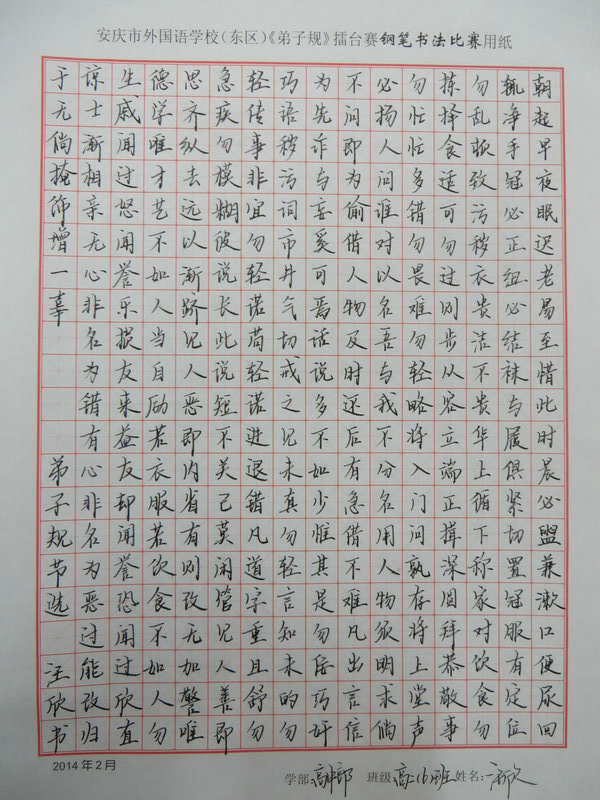 安庆市外国语学校(东区)《弟子规》擂台赛钢笔书法比赛用纸
朝起早夜眠迟老易至惜此时晨必盥兼漱口便尿回
辄净手冠必正纽必结袜与履俱紧切置冠服有定位
勿乱顿致污秽衣贵洁不贵华上循下称家对饮食勿
拣择食适可勿过则步从容立端正揖深圆拜恭敬事
勿忙忙多错勿畏难勿轻略将入门问孰存将上堂声
必扬人问谁对以名吾与我不分名用人物须明求倘
不问即为偷借人物及时还后有急借不难凡出言信
为先诈与妄奚可焉话说多不如少惟其是勿佞巧奸
巧语秽污词市井气切戒之见未真勿轻言知未的勿
轻传事非宜勿轻诺苟轻诺进退错凡道字重且舒勿
急疾勿模糊彼说长此说短不关己莫闲管见人善即
思齐纵去远以渐跻见人恶即内省有则改无加警唯
德学唯才艺不如人当自励若衣服若饮食不如人勿
生戚闻过怒闻誉乐损友来益友却闻誉恐闻过欣直
谅士渐相亲无心非名为错有心非名为恶过能改归
于无倘掩饰增一辜 弟子规节选 汪欣书
2014年2月
学部:高中部 班级:高一(6)班 姓名:汪欣